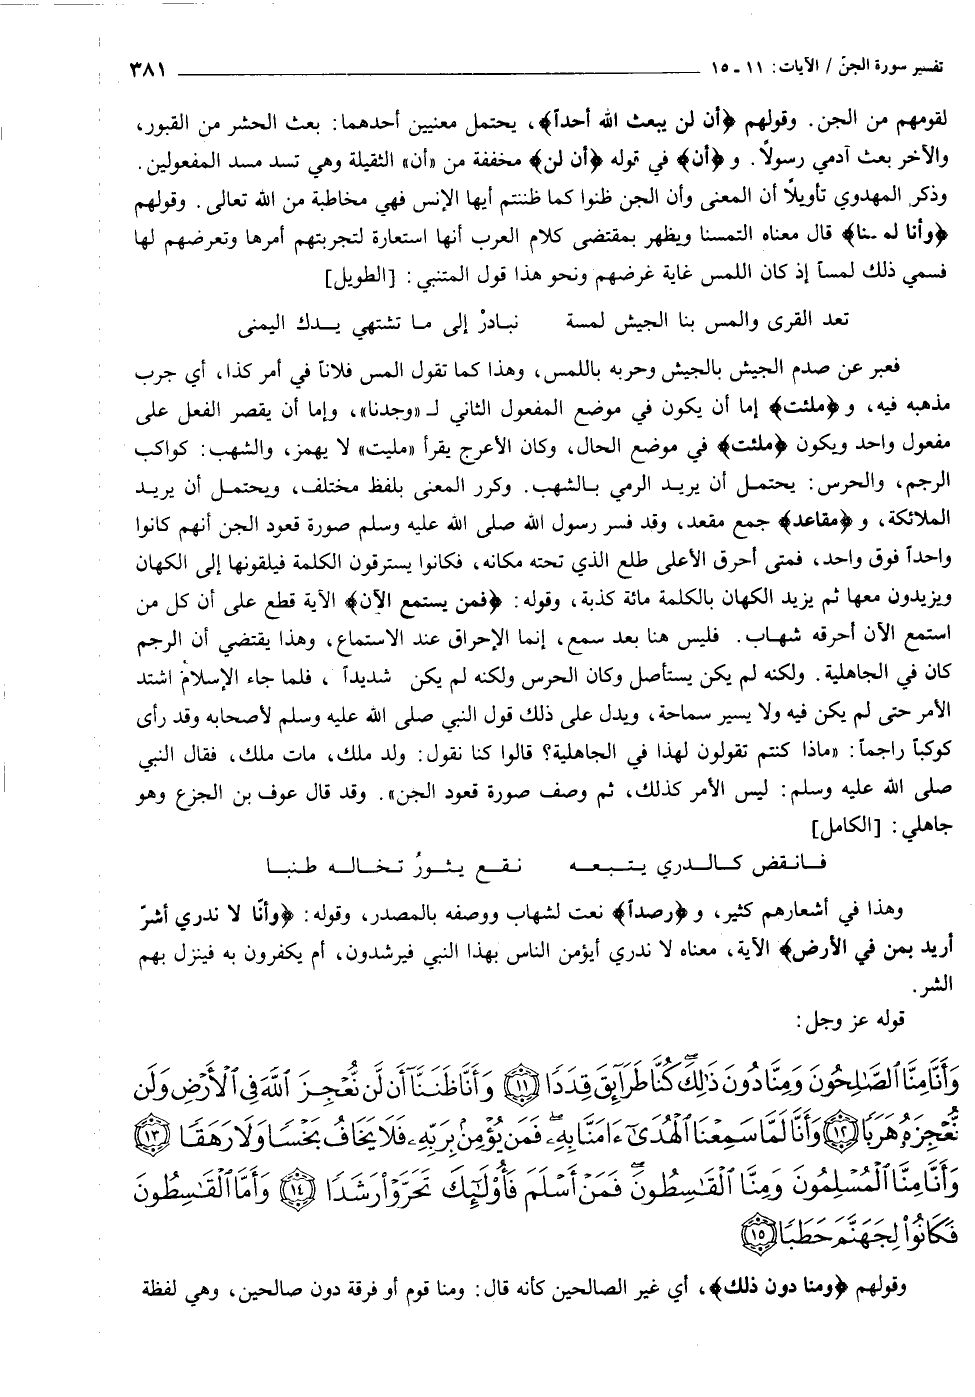 تفسير سورة الجنّ / الآيات: ١١ - ١٥ ٣٨١
لقومهم من الجن. وقولهم ﴿أن لن يبعث الله أحداً﴾، يحتمل معنيين أحدهما: بعث الحشر من القبور،
والآخر بعث آدمي رسولاً. و ﴿أن﴾ في قوله ﴿أن لن﴾ مخففة من «أن» الثقيلة وهي تسد مسد المفعولين.
وذكر المهدوي تأويلاً أن المعنى وأن الجن ظنوا كما ظننتم أيها الإنس فهي مخاطبة من الله تعالى. وقولهم
﴿وأنا لمسنا﴾ قال معناه التمسنا ويظهر بمقتضى كلام العرب أنها استعارة لتجربتهم أمرها وتعرضهم لها
فسمي ذلك لمساً إذ كان اللمس غاية غرضهم ونحو هذا قول المتنبي: [الطويل]
تعد القرى والمس بنا الجيش لمسة نبادرْ إلى ما تشتهي يدك اليمنى
فعبر عن صدم الجيش بالجيش وحربه باللمس، وهذا كما تقول المس فلاناً في أمر كذا، أي جرب
مذهبه فيه، و ﴿ملئت﴾ إما أن يكون في موضع المفعول الثاني لـ «وجدنا»، وإما أن يقصر الفعل على
مفعول واحد ويكون ﴿ملئت﴾ في موضع الحال، وكان الأعرج يقرأ «مليت» لا يهمز، والشهب: كواكب
الرجم، والحرس: يحتمل أن يريد الرمي بالشهب. وكرر المعنى بلفظ مختلف، ويحتمل أن يريد
الملائكة، و ﴿مقاعد﴾ جمع مقعد، وقد فسر رسول الله صلى الله عليه وسلم صورة قعود الجن أنهم كانوا
واحداً فوق واحد، فمتى أحرق الأعلى طلع الذي تحته مكانه، فكانوا يسترقون الكلمة فيلقونها إلى الكهان
ويزيدون معها ثم يزيد الكهان بالكلمة مائة كذبة، وقوله: ﴿فمن يستمع الآن﴾ الآية قطع على أن كل من
استمع الآن أحرقه شهاب. فليس هنا بعد سمع، إنما الإحراق عند الاستماع، وهذا يقتضي أن الرجم
كان في الجاهلية. ولكنه لم يكن يستأصل وكان الحرس ولكنه لم يكن شديداً ، فلما جاء الإسلام اشتد
الأمر حتى لم يكن فيه ولا يسير سماحة، ويدل على ذلك قول النبي صلى الله عليه وسلم لأصحابه وقد رأى
كوكباً راجماً: «ماذا كنتم تقولون لهذا في الجاهلية؟ قالوا كنا نقول: ولد ملك، مات ملك، فقال النبي
صلى الله عليه وسلم: ليس الأمر كذلك، ثم وصف صورة قعود الجن». وقد قال عوف بن الجزع وهو
جاهلي: [الكامل]
فانقض كالدري يتبعه نقع يثورُ تخاله طنبا
وهذا في أشعارهم كثير، و ﴿رصداً﴾ نعت لشهاب ووصفه بالمصدر، وقوله: ﴿وأنّا لا ندري أشرّ
أريد بمن في الأرض﴾ الآية، معناه لا ندري أيؤمن الناس بهذا النبي فيرشدون، أم يكفرون به فينزل بهم
الشر.
قوله عز وجل:
وَأَنَّا مِنَّا ٱلصَّـٰلِحُونَ وَمِنَّا دُونَ ذَٰلِكَ ۖ كُنَّا طَرَآئِقَ قِدَدًا ١١ وَأَنَّا ظَنَنَّآ أَن لَّن نُّعْجِزَ ٱللَّهَ فِى ٱلْأَرْضِ وَلَن
نُّعْجِزَهُۥ هَرَبًا ١٢ وَأَنَّا لَمَّا سَمِعْنَا ٱلْهُدَىٰٓ ءَامَنَّا بِهِۦ ۖ فَمَن يُؤْمِنۢ بِرَبِّهِۦ فَلَا يَخَافُ بَخْسًا وَلَا رَهَقًا ١٣
وَأَنَّا مِنَّا ٱلْمُسْلِمُونَ وَمِنَّا ٱلْقَـٰسِطُونَ ۖ فَمَنْ أَسْلَمَ فَأُو۟لَـٰٓئِكَ تَحَرَّوْا۟ رَشَدًا ١٤ وَأَمَّا ٱلْقَـٰسِطُونَ
فَكَانُوا۟ لِجَهَنَّمَ حَطَبًا ١٥
وقولهم ﴿ومنا دون ذلك﴾، أي غير الصالحين كأنه قال: ومنا قوم أو فرقة دون صالحين، وهي لفظة